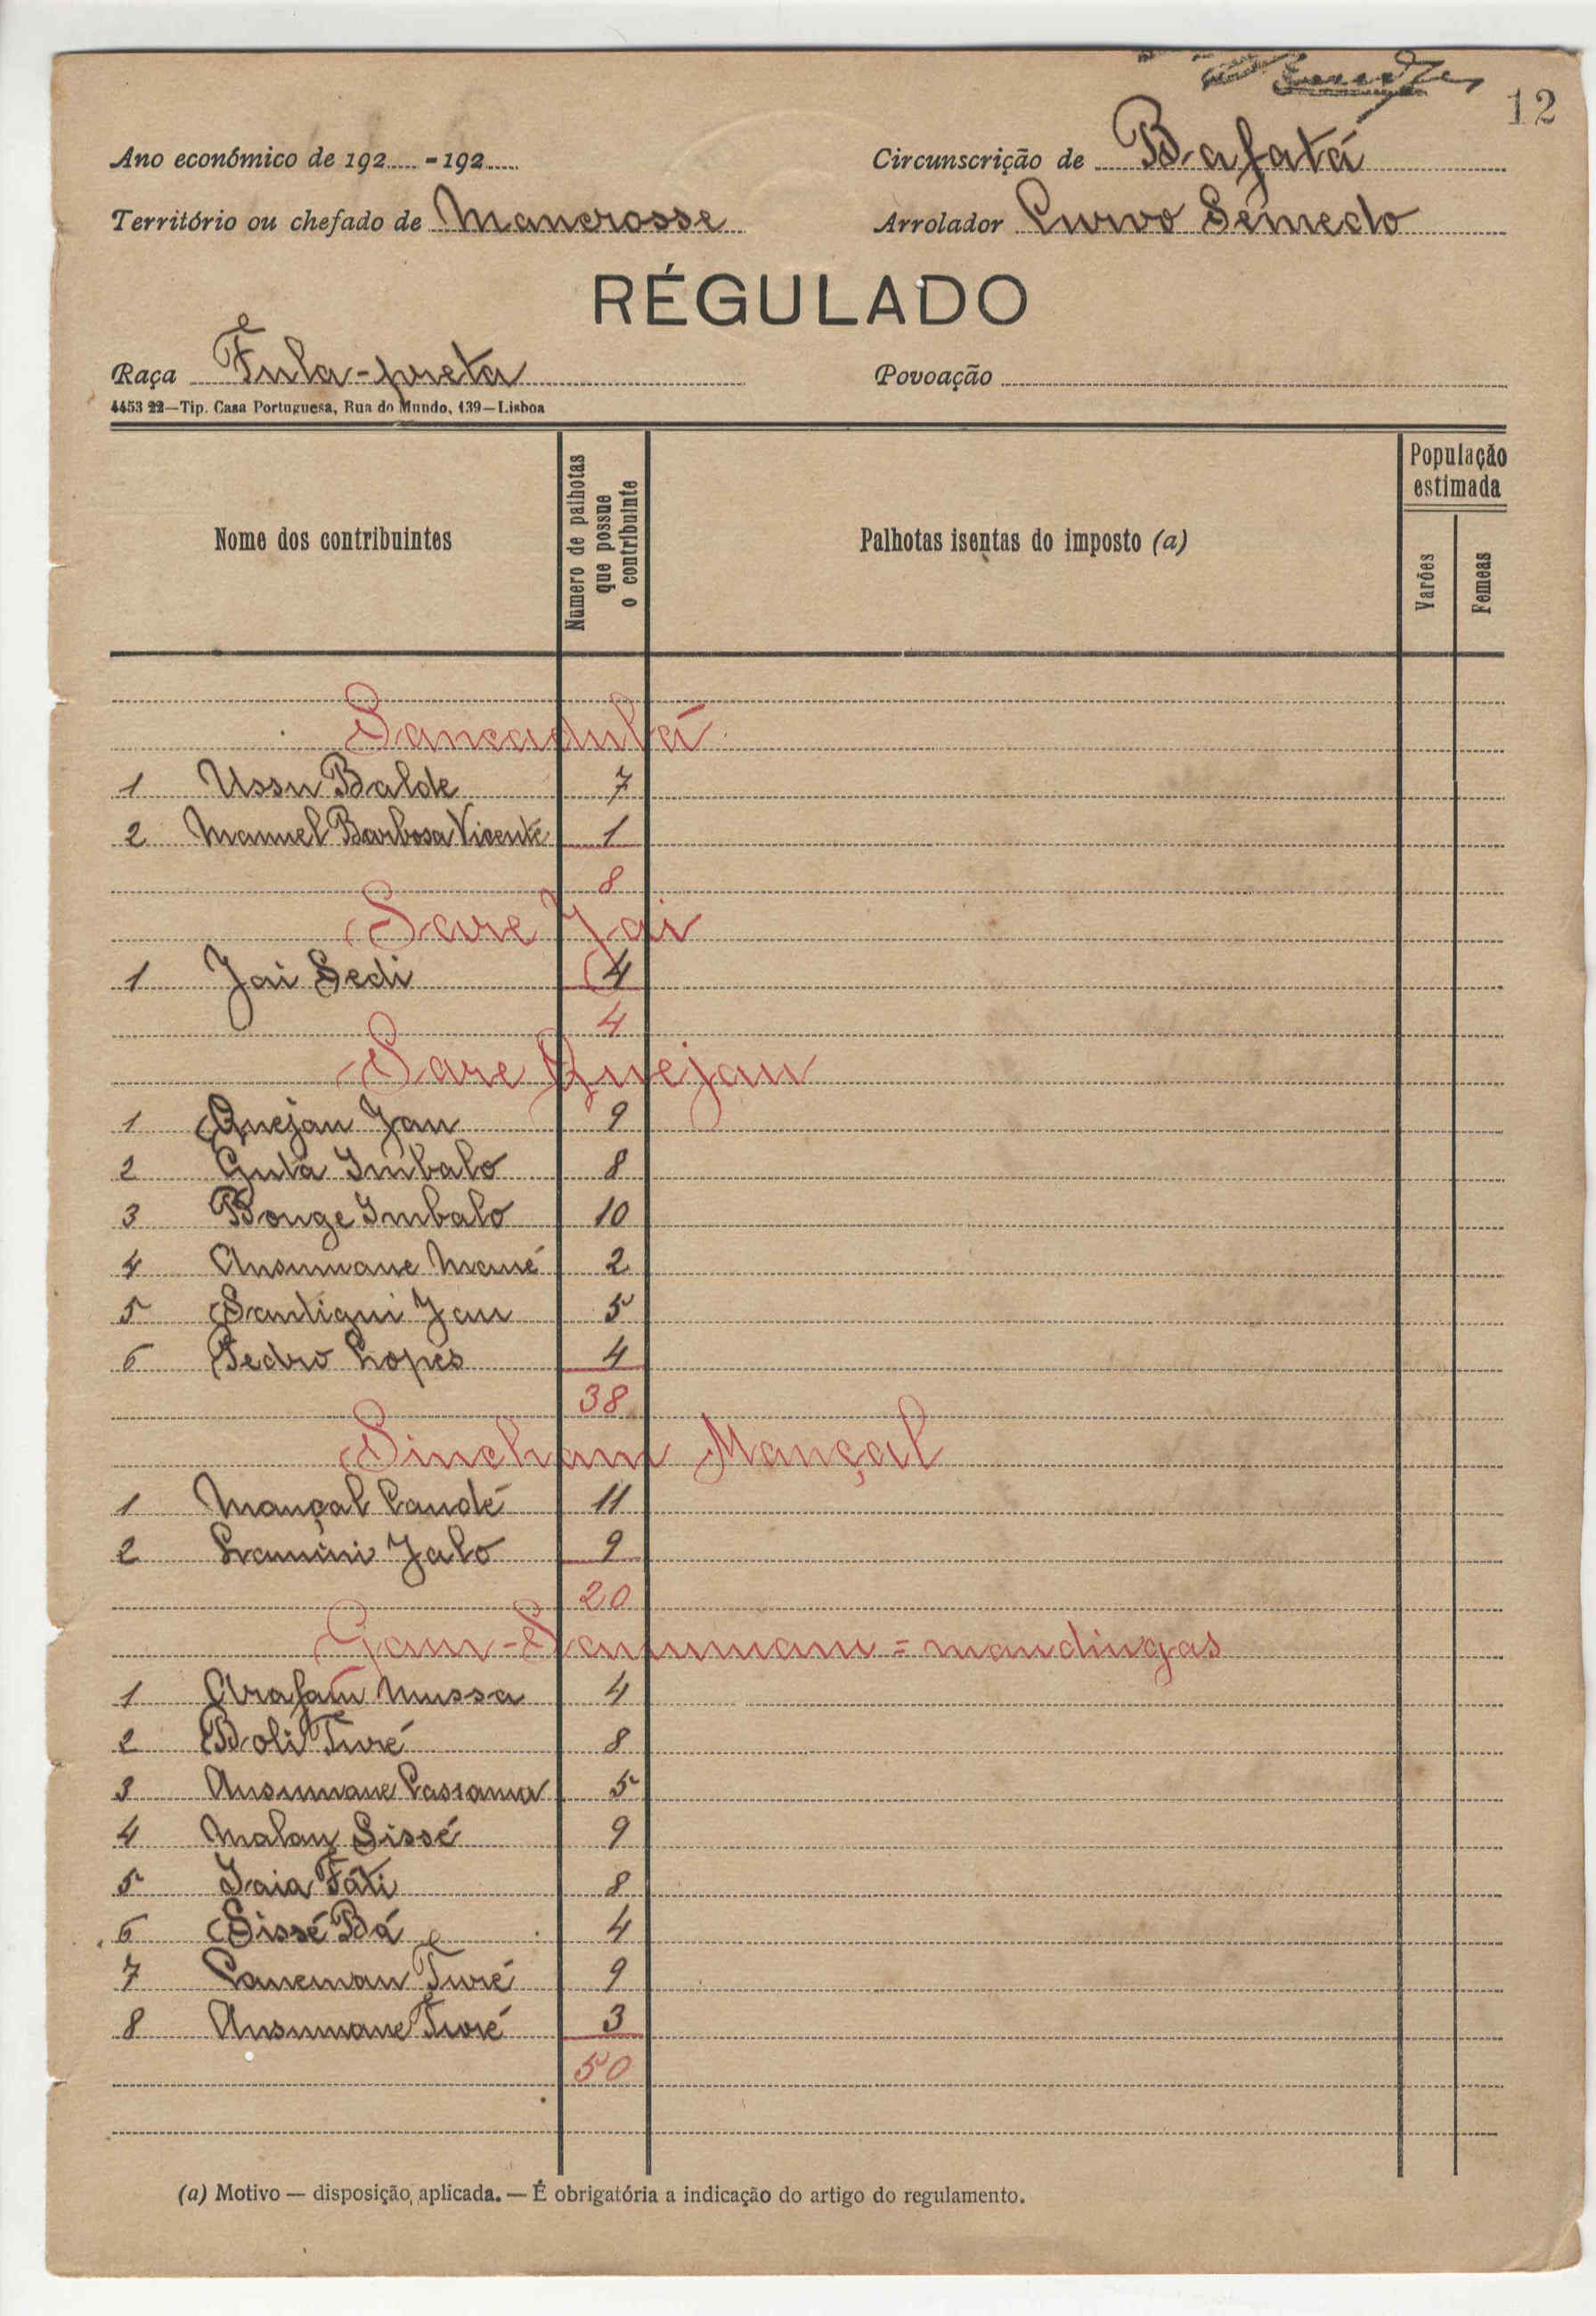 12
Ano económico de 192..... - 192..... Circunscrição de Bafatá
Território ou chefado de Mancrosse Arrolador Curvo Semedo
RÉGULADO
Raça Fula-preta Povoação
4453 22—Tip. Casa Portuguesa, Rua do Mundo, 139—Lisboa
Nome dos contribuintes
Número de palhotas que possue o contribuinte
Palhotas isentas do imposto (a)
População estimada
Varões
Femeas
Sancadulá
1 Ussu Balde 7
2 Manuel Barbosa Vicente 1
8
Sare Jai
1 Jai Sedi 4
4
Sare Quejau
1 Quejau Jau 9
2 Guta Imbalo 8
3 Bonge Imbalo 10
4 Ansumane Mané 2
5 Santigui Jau 5
6 Pedro Lopes 4
38
Sincham Mançal
1 Mançal Candé 11
2 Lamini Jalo 9
20
mandingas
1 Arafam Mussa 4
2 Boli Turé 8
3 Ansumane Cassama 5
4 Malan Sissé 9
5 Iaia Fáti 8
6 Sissé Bá 4
7 Caneman Turé 9
8 Ansumane Turé 3
50
(a) Motivo — disposição aplicada. — É obrigatória a indicação do artigo do regulamento.